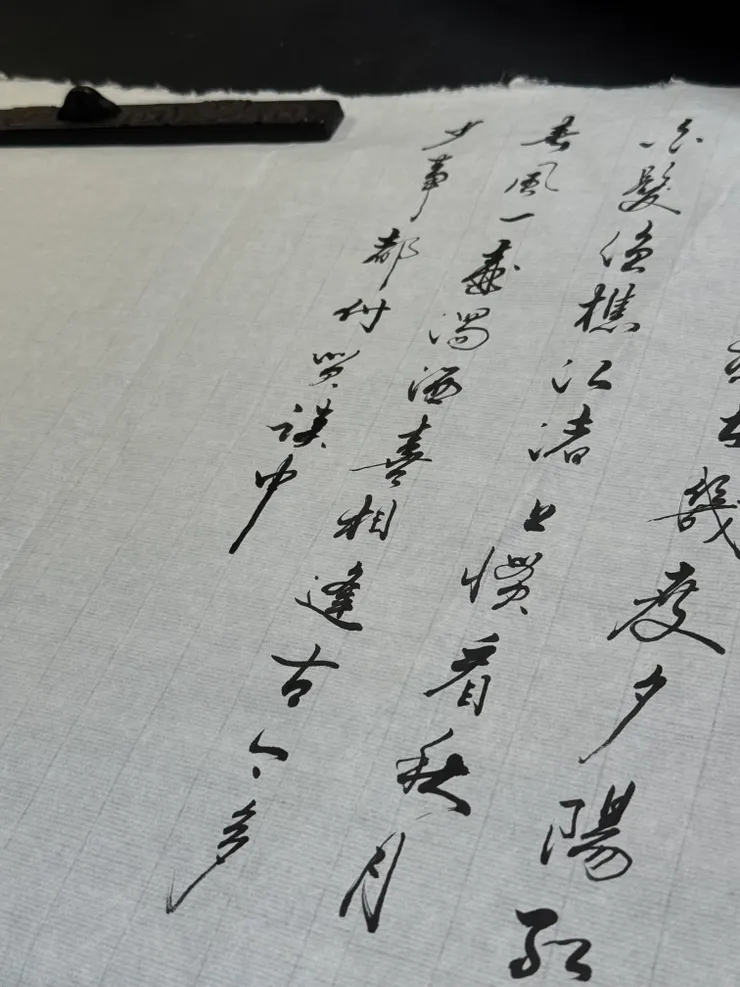 在幾度夕陽紅
白髮漁樵江渚上慣看秋月
春風一壺濁酒喜相逢古今多
少事都付笑談中